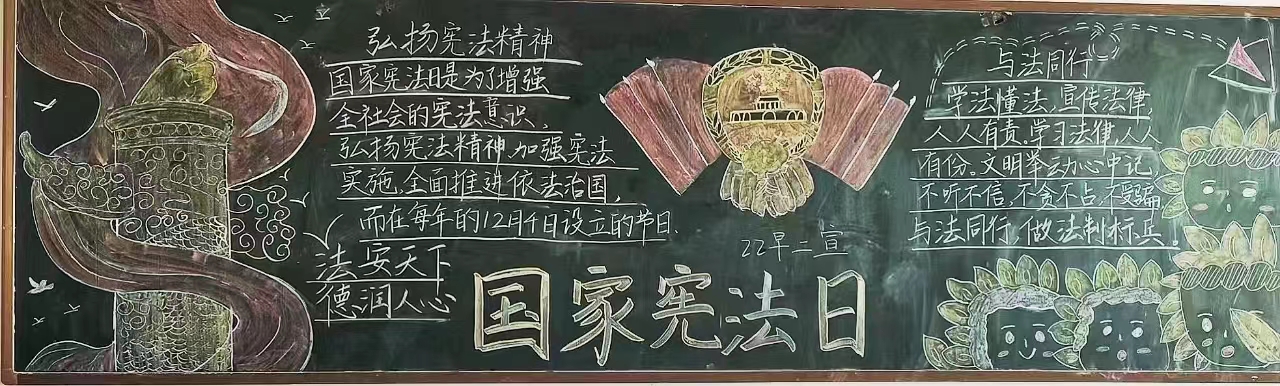 弘扬宪法精神
国家宪法日是为了增强
全社会的宪法意识,
弘扬宪法精神,加强宪法
实施,全面推进依法治国,
而在每年的12月4日设立的节日.
法安天下
德润人心
22早二宣
国家宪法日
与法同行
学法懂法,宣传法律,
人人有责.学习法律,人人
有份。文明举动心中记,
不听不信,不贪不占,不受骗
与法同行,做法制标兵.